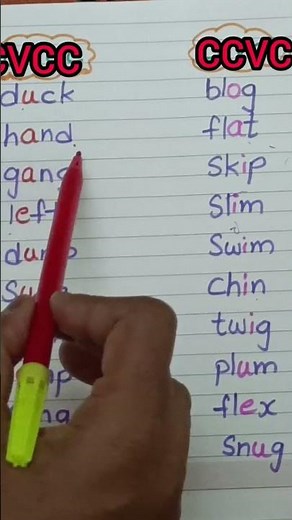 CVCC
duck
hand
gang
left
dump
CCVC
blog
flat
skip
slim
swim
chin
twig
plum
flex
snug